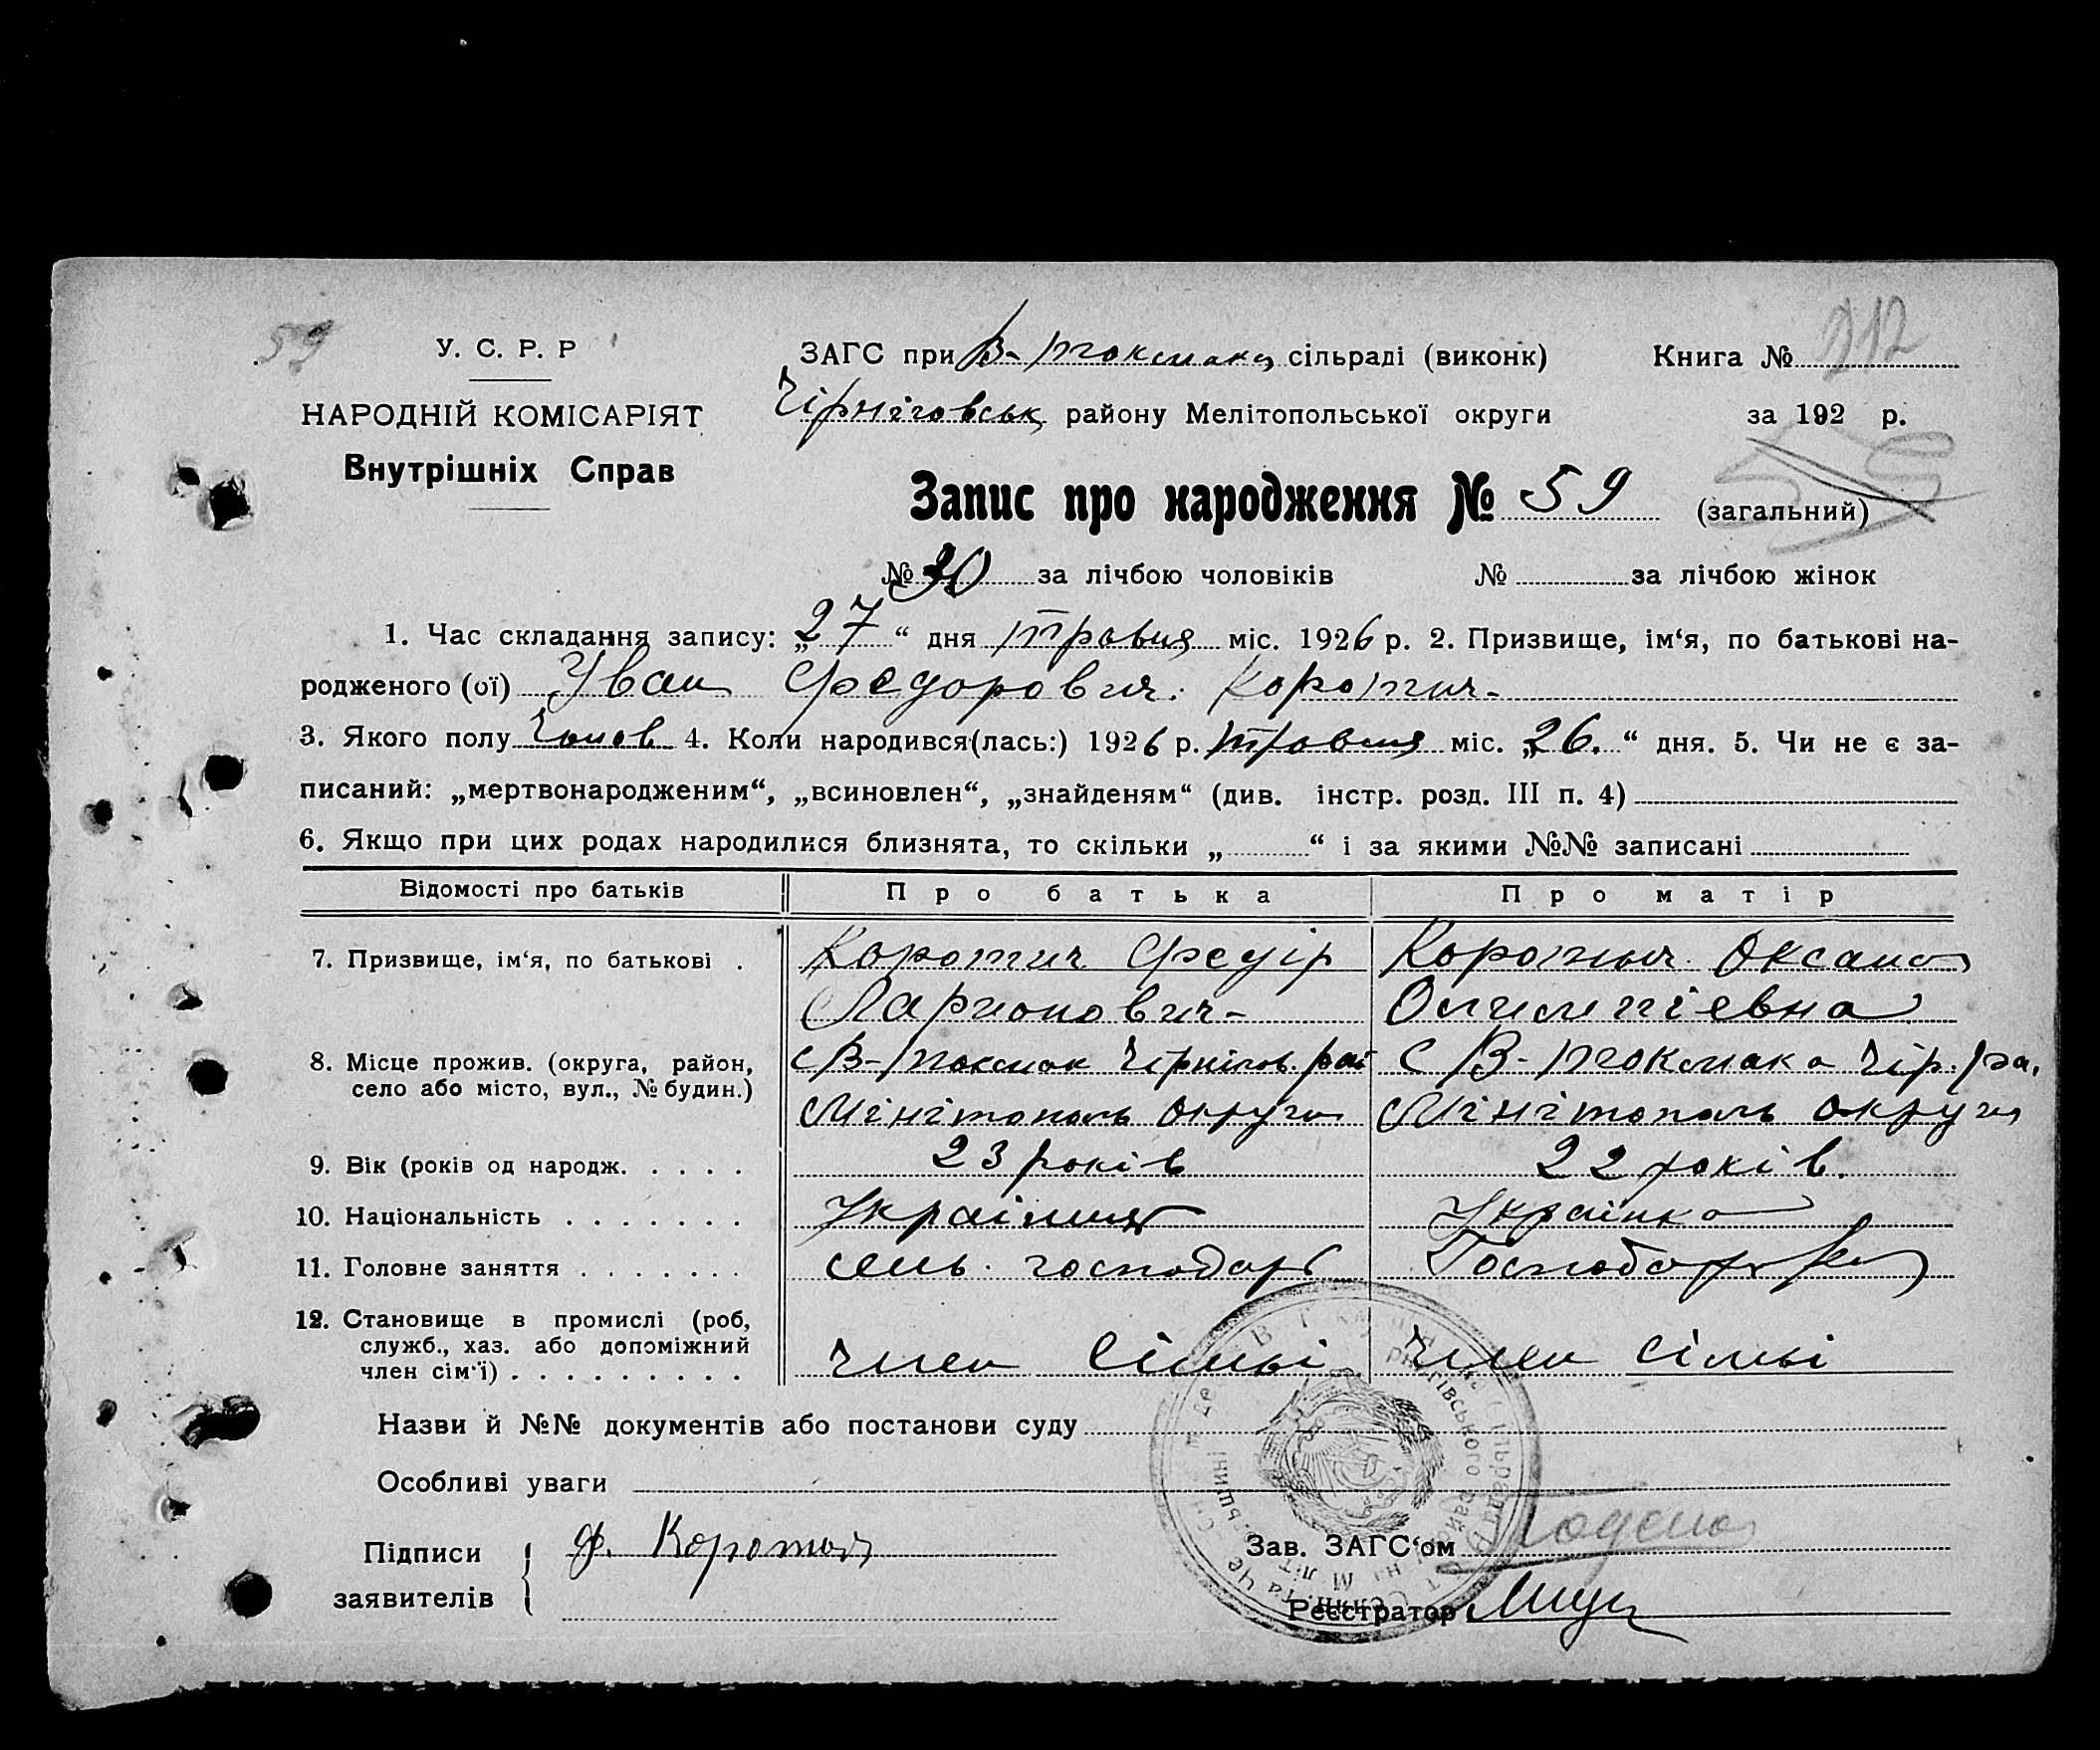 59
У. С. Р. Р
ЗАГС при В-Токмака сільраді (виконк)
Книга № 212
НАРОДНІЙ КОМІСАРІЯТ
Чірніговськ району Мелітопольської округи
за 192 р.
Внутрішніх Справ
Запис про народження № 59 (загальний)
№ 30 за лічбою чоловіків № за лічбою жінок
1. Час складання запису: „27“ дня травня міс. 1926 р. 2. Призвище, ім‘я, по батькові на-
родженого (ої) Іван Федорович. Коротич-
3. Якого полу Чолов 4. Коли народився(лась:) 1926 р. травня міс. „26.“ дня. 5. Чи не є за-
писаний: „мертвонародженим“, „всиновлен“, „знайденям“ (див. інстр. розд. III п. 4)
6. Якщо при цих родах народилися близнята, то скільки „ “ і за якими №№ записані
Відомості про батьків Про батька Про матір
7. Призвище, ім‘я, по батькові . Коротич Федір Коротич Оксана
Ларионович- Олимпіевна
8. Місце прожив. (округа, район, с В-Токмак Чірнігов. рай с В-Токмака Чір. ра.
село або місто, вул., № будин.)
Мінітополь округи Мінітополь округи
9. Вік (років од народж. . . . . 23 років 22 років.
10. Національність . . . . . . . Українця Українка
11. Головне заняття . . . . . . . сель. господарь Господарка
12. Становище в промислі (роб,
служб., хаз. або допоміжний Член сімьі Член сімьі
член сім‘ї) . . . . . . . . .
Назви й №№ документів або постанови суду
Особливі уваги
Підписи Ф. Коротич
Зав. ЗАГС‘ом
заявителів
Реєстратор